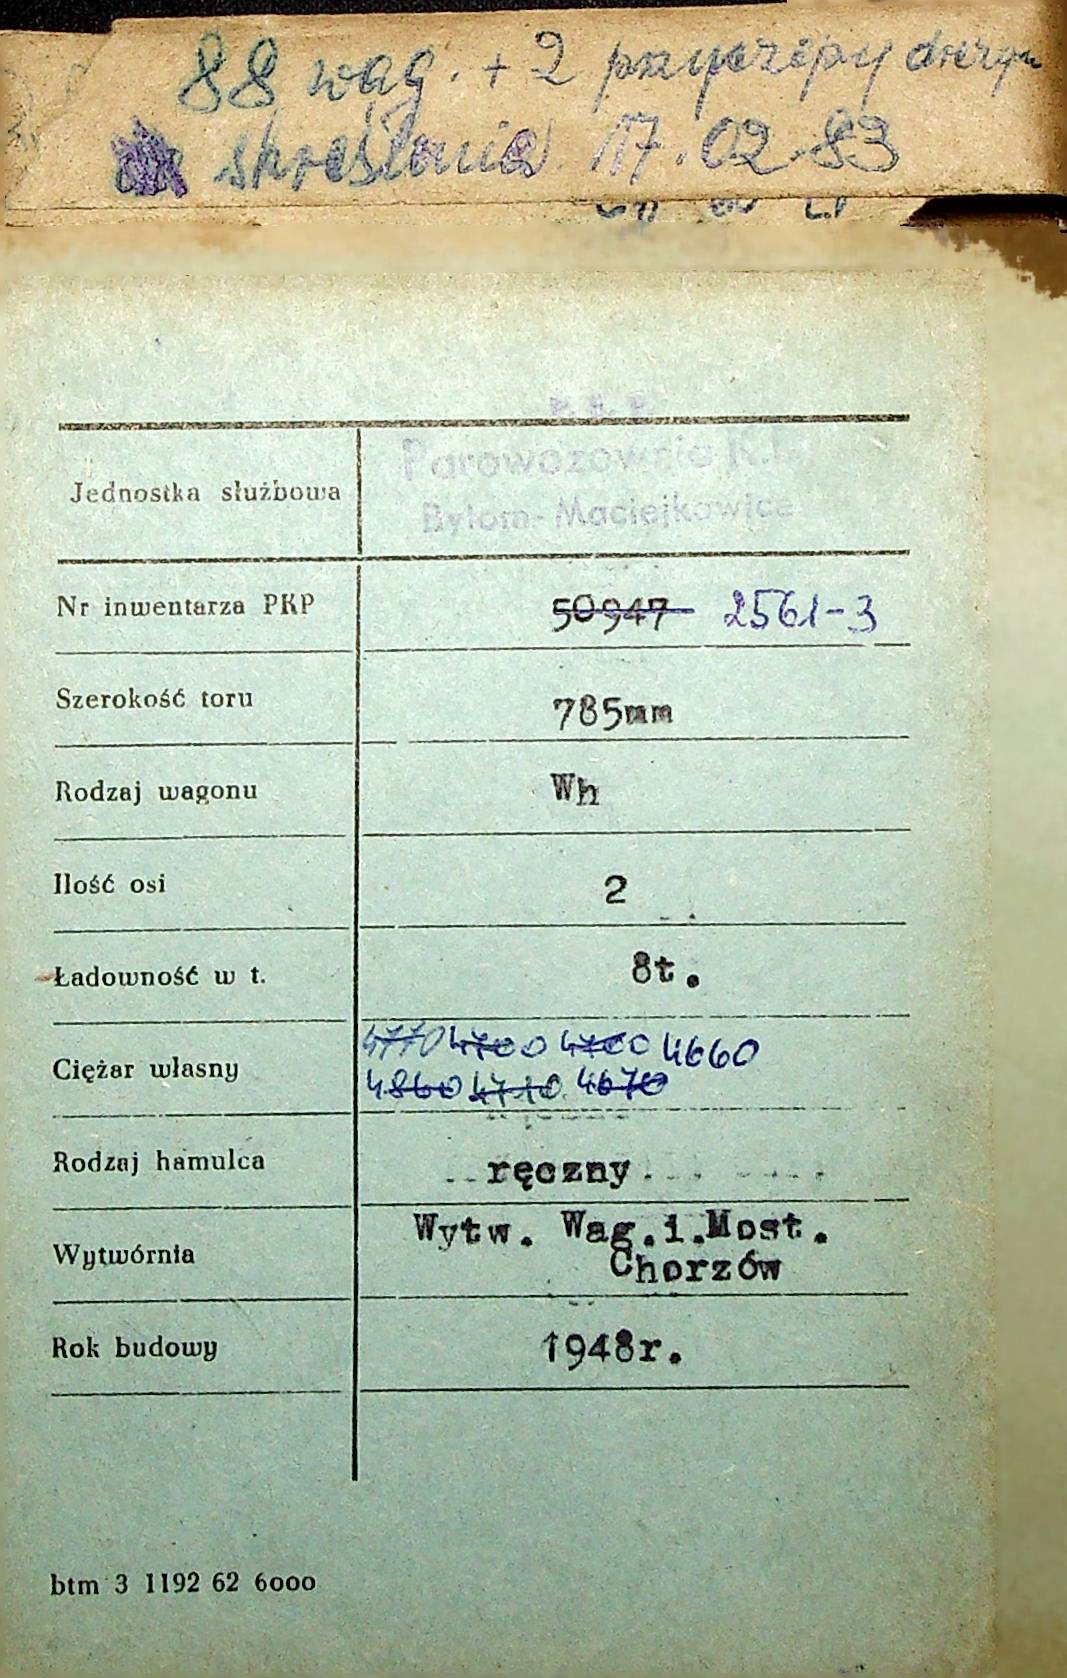 88 wag. + 2 przyczepy drezyn
skreślenia 17.02.83
P. K. P.
Parowozownia K.D.
Jednostka służbowa
Bytom-Maciejkowice
Nr inwentarza PKP 50947 2561-3
Szerokość toru 785mm
Rodzaj wagonu Wh
Ilość osi 2
Ładowność w t. 8t.
4770 4700 4700 4660
Ciężar własny
4860 4710 4670
Rodzaj hamulca ręczny
Wytw. Wag.i.Most.
Wytwórnia Chorzów
Rok budowy 1948r.
btm 3 1192 62 6000